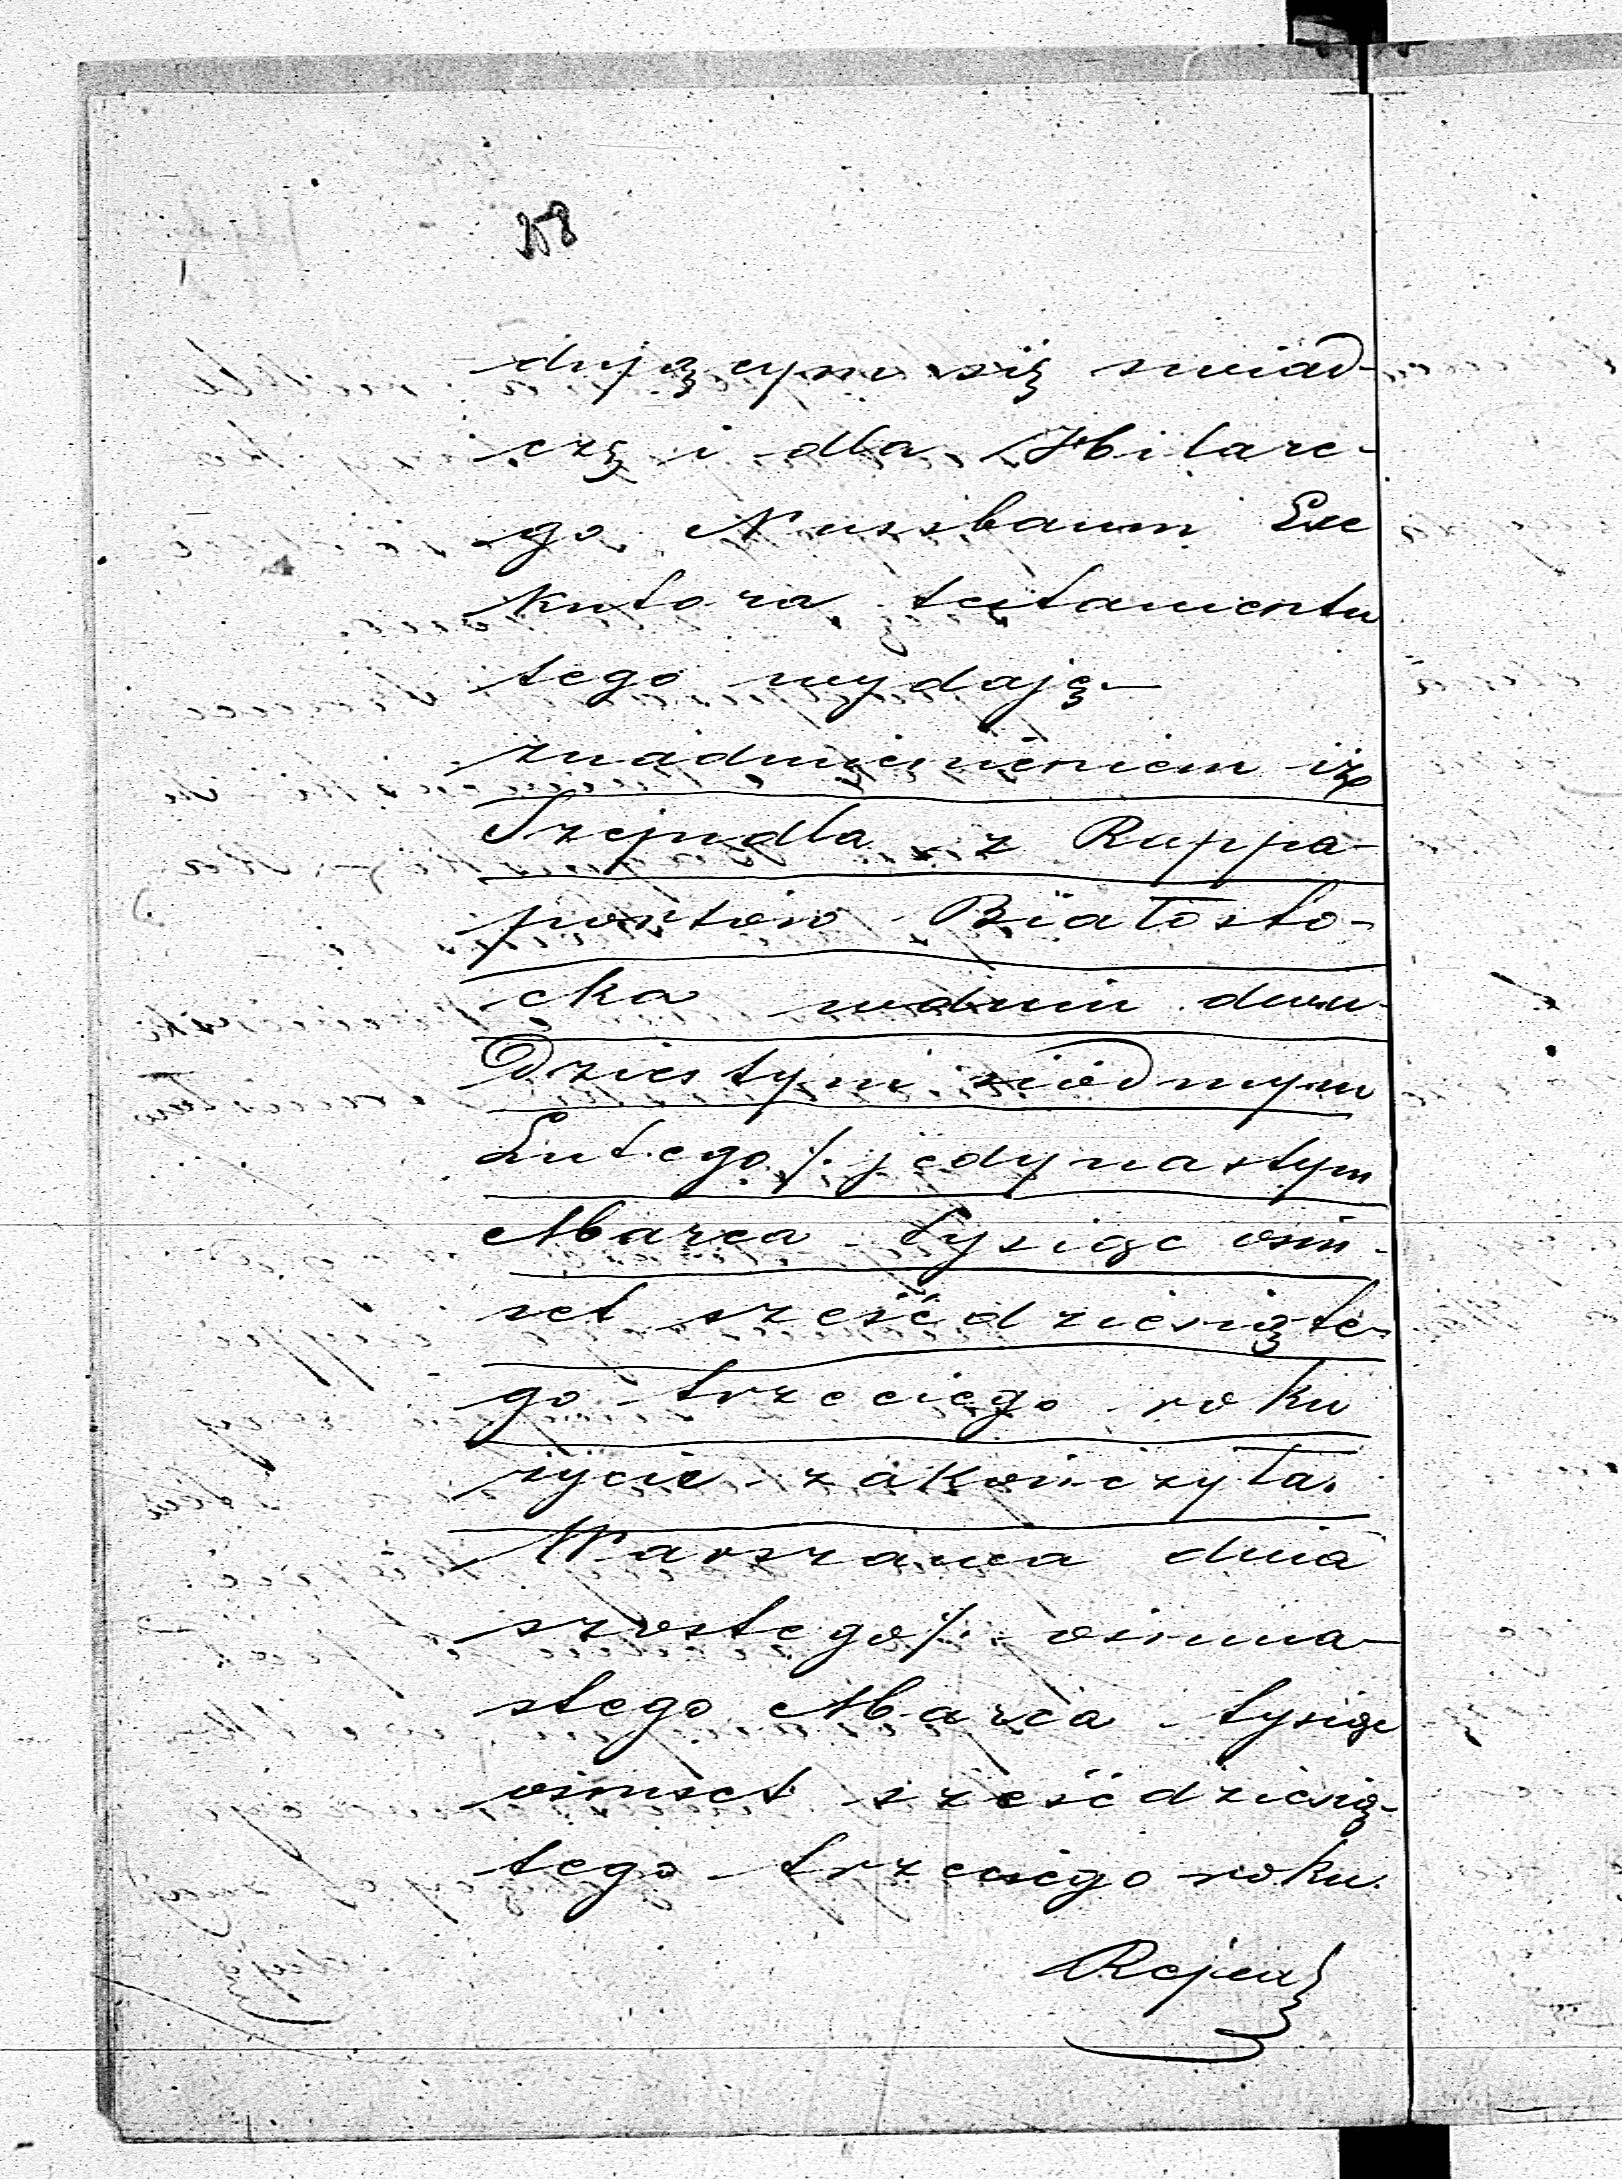 58
dującym się swiad-
czę i dla Hilare-
go Nussbaum Exe
kutora testamentu
tego wydaję—
znadmienieniem iż
Szejndla z Rappa-
portów Białosto-
cka wdniu dwu-
Dziestym siódmym
Lutego /. jedynastym
Marca tysiąc ośm-
set sześćdziesiąte-
go trzeciego roku
życie zakończyła.
Warszawa dnia
szóstego /. ośmna-
stego Marca tysiąc
ośmset sześćdziesią-
tego trzeciego roku.